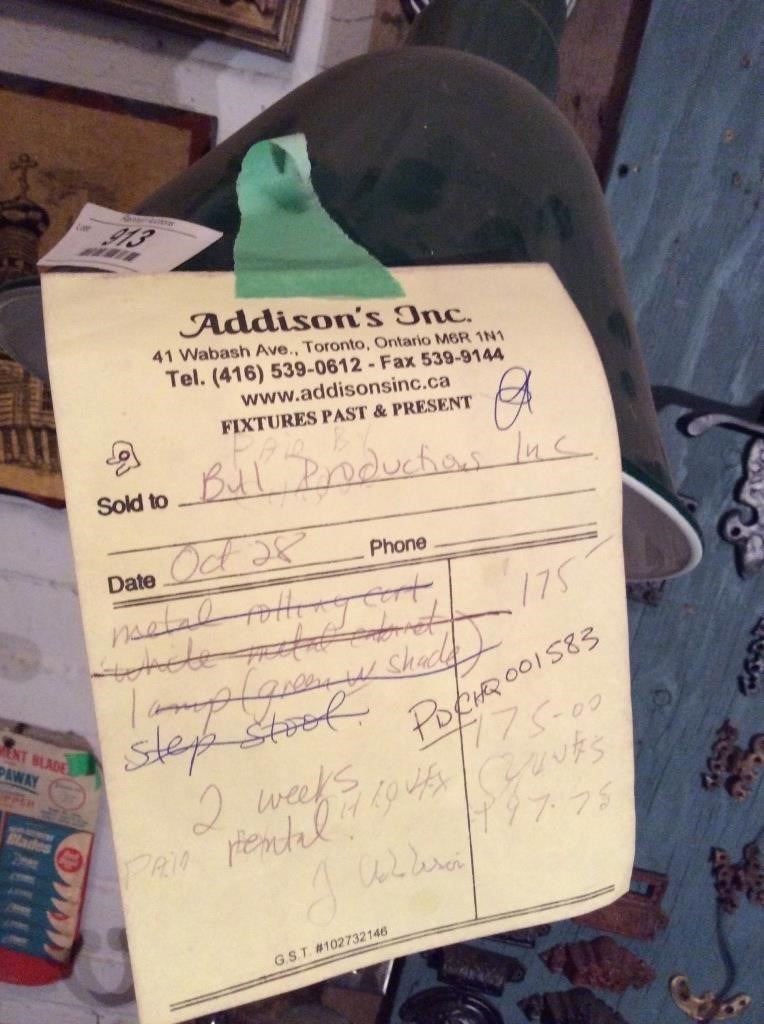 913
Addison's Inc.
41 Wabash Ave., Toronto, Ontario M6R 1N1
Tel. (416) 539-0612 - Fax 539-9144
www.addisonsinc.ca
FIXTURES PAST & PRESENT
PAID BY
Sold to Bull Productions Inc
Date Oct 28 Phone
metal rolling cart 175
white metal cabinet
lamp (green w shade)
step stool. PDCHQ001583
175-00
2 weeks
rental.
PAID
197.75
G.S.T. #102732146
MENT BLADE
PAWAY
Blades